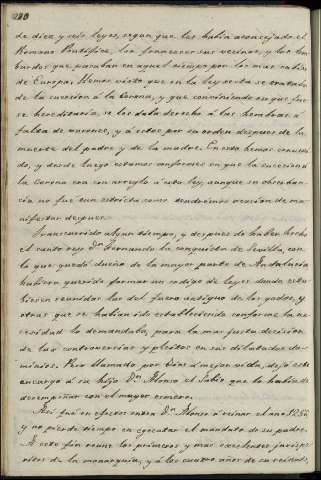 280
de diez y seis leyes, segun que les habia aconsejado el
Romano Pontifice, los franceses sus vecinos, y los lom-
bardos que pasaban en aquel tiempo por los mas sabios
de Europa. Hemos visto que en la ley sesta se trataba
de la sucesion á la Corona, y que conviniendo en que fue-
se hereditaria, se les daba derecho á las hembras á
falta de varones, y á estos por su orden despues de la
muerte del padre y de la madre. En esto hemos convenido,
y desde luego estamos conformes en que la sucesion á
la Corona era con arreglo á esta ley, aunque su observan-
cia no fue tan estricta como tendremos ocasion de ma-
nifestar despues.
Transcurrido algun tiempo, y despues de haber hecho
el santo rey Dn. Fernando la conquista de Sevilla, con
lo que quedó dueño de la mayor parte de Andalucia
hubiera querido formar un codigo de leyes donde estu-
biesen reunidas las del fuero antiguo de los godos, y
otras que se habian ido estableciendo conforme la ne-
cesidad lo demandaba, para la mas justa decision
de las controversias y pleitos en sus dilatados do-
minios. Pero llamado por Dios á mejor vida, dejó este
encargo á su hijo Dn. Alonso el Sabio que lo habia de
desempeñar con el mayor esmero.
Asi fué en efecto: entra Dn. Alonso á reinar el año 1252
y no pierde tiempo en ejecutar el mandato de su padre.
A este fin reune los primeros y mas excelentes jurispe-
ritos de la monarquia, y á los cuatro años de su reinado,